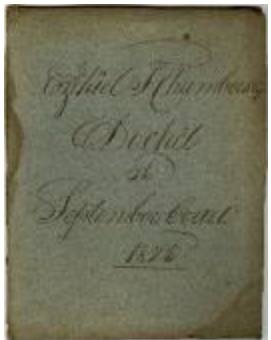 Ezekiel F Chambers's
Docket
at
September Court
1826